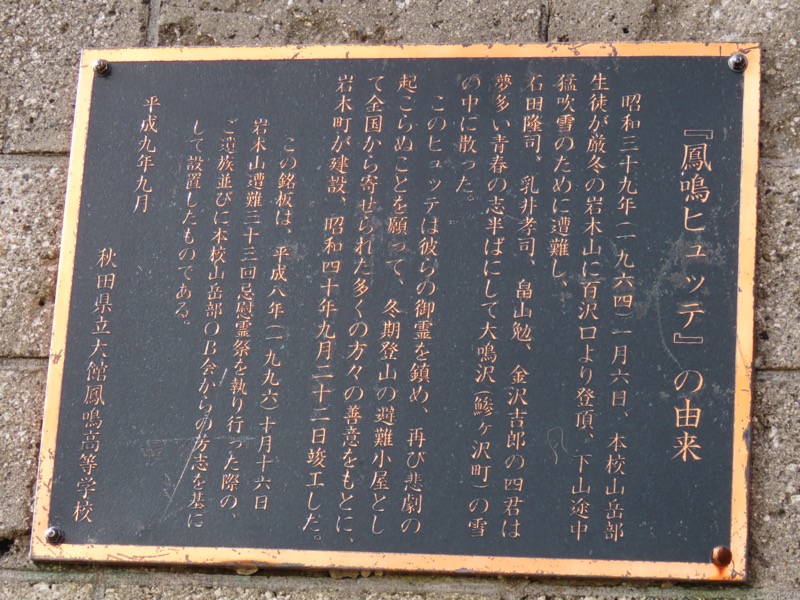 『鳳鳴ヒュッテ』の由来
昭和三十九年(一九六四)一月六日、本校山岳部
生徒が厳冬の岩木山に百沢口より登頂、下山途中
猛吹雪のために遭難し、
石田隆司、乳井孝司、畠山勉、金沢吉郎の四君は
夢多い青春の志半ばにして大鳴沢(鰺ヶ沢町)の雪
の中に散った。
このヒュッテは彼らの御霊を鎮め、再び悲劇の
起こらぬことを願って、冬期登山の避難小屋とし
て全国から寄せられた多くの方々の善意をもとに、
岩木町が建設、昭和四十年九月二十二日竣工した。
この銘板は、平成八年(一九九六)十月十六日
岩木山遭難三十三回忌慰霊祭を執り行った際の、
ご遺族並びに本校山岳部OB会からの芳志を基に
して設置したものである。
平成九年九月
秋田県立大館鳳鳴高等学校